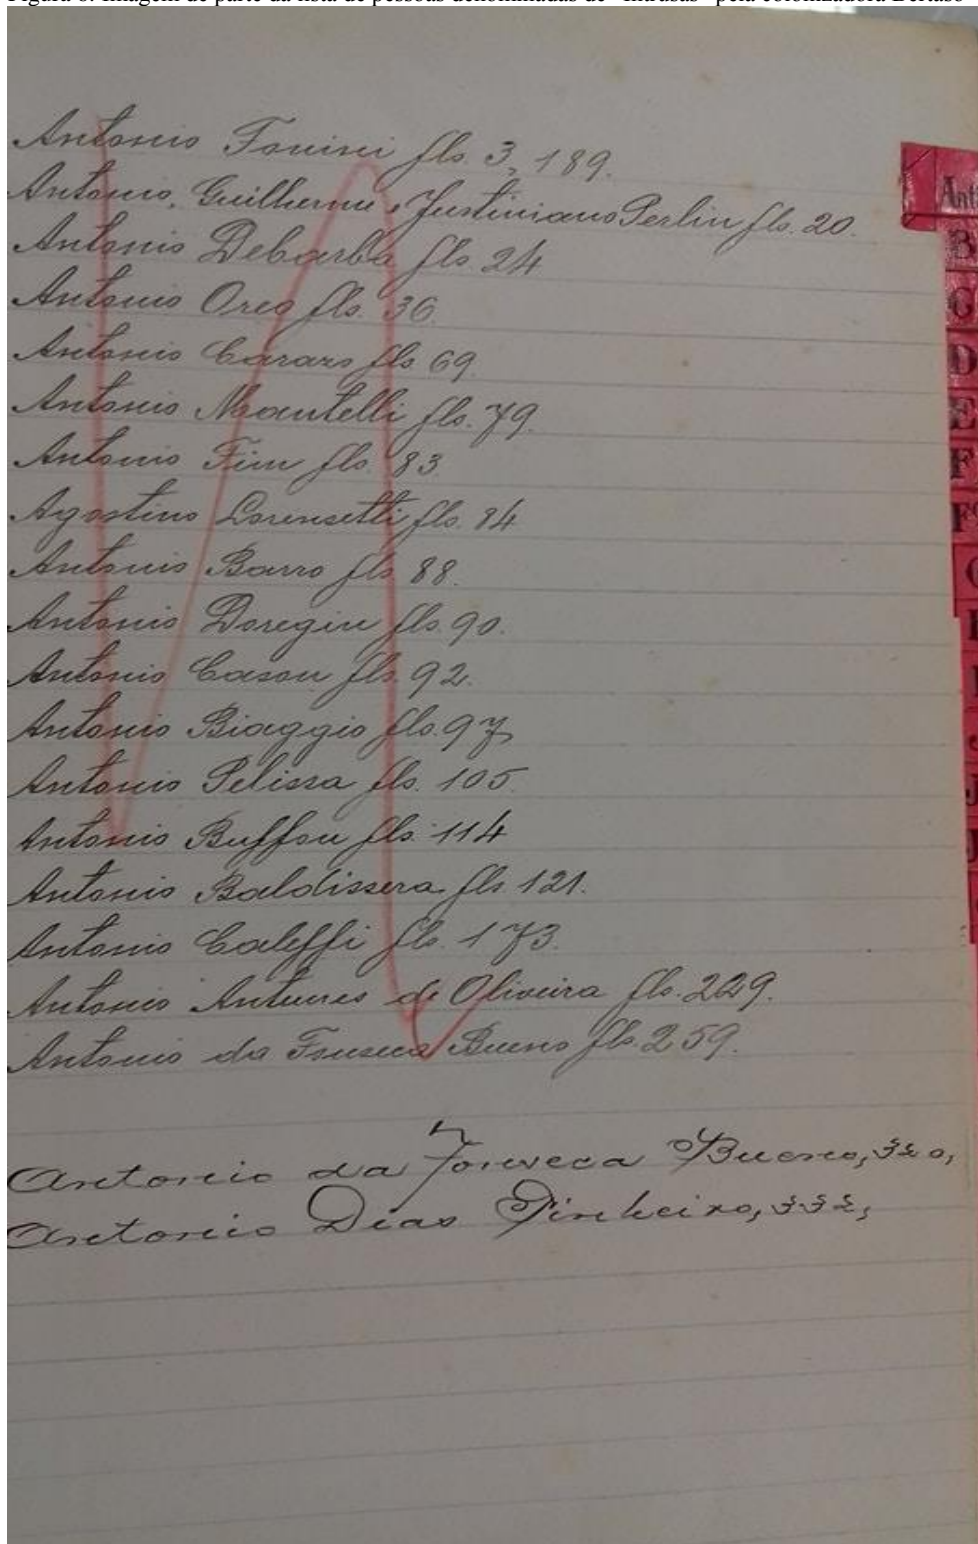 Figura 6: Imagem de parte da lista de pessoas denominadas de "Intrusas" pela colonizadora Bertaso
Antonio Tonini fls 3, 189.
Antonio, Guilherme e Justiniano Perlin fls. 20.
Antonio Debarba fls 24
Antonio Oreo fls. 36
Antonio Cararo fls 69
Antonio Mantelli fls. 79.
Antonio Fim fls. 83
Agostino Lorensetti fls. 84
Antonio Barro fls 88.
Antonio Doregin fls. 90.
Antonio Cason fls. 92.
Antonio Biaggio fls. 97
Antonio Pelissa fls. 105.
Antonio Buffon fls. 114
Antonio Baldissera fls. 121.
Antonio Caleffi fls. 173.
Antonio Antunes de Oliveira fls. 229.
Antonio da Fonseca Bueno fls. 259.
Antonio da Fonseca Bueno, 320,
Antonio Dias Pinheiro, 332,
Ant
B
C
D
E
F